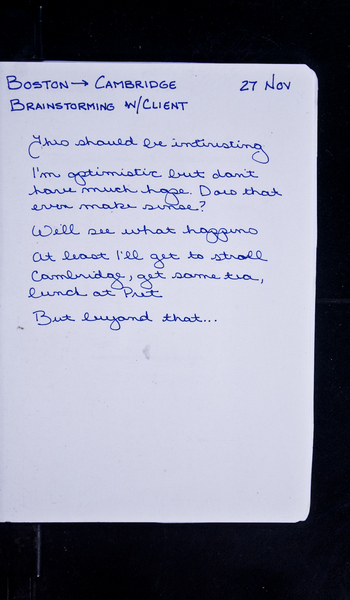 BOSTON → CAMBRIDGE 27 NOV
BRAINSTORMING W/CLIENT
This should be interesting
I'm optimistic but don't
have much hope. Does that
even make sense?
We'll see what happens
At least I'll get to stroll
Cambridge, get some tea,
lunch at Pret
But beyond that...